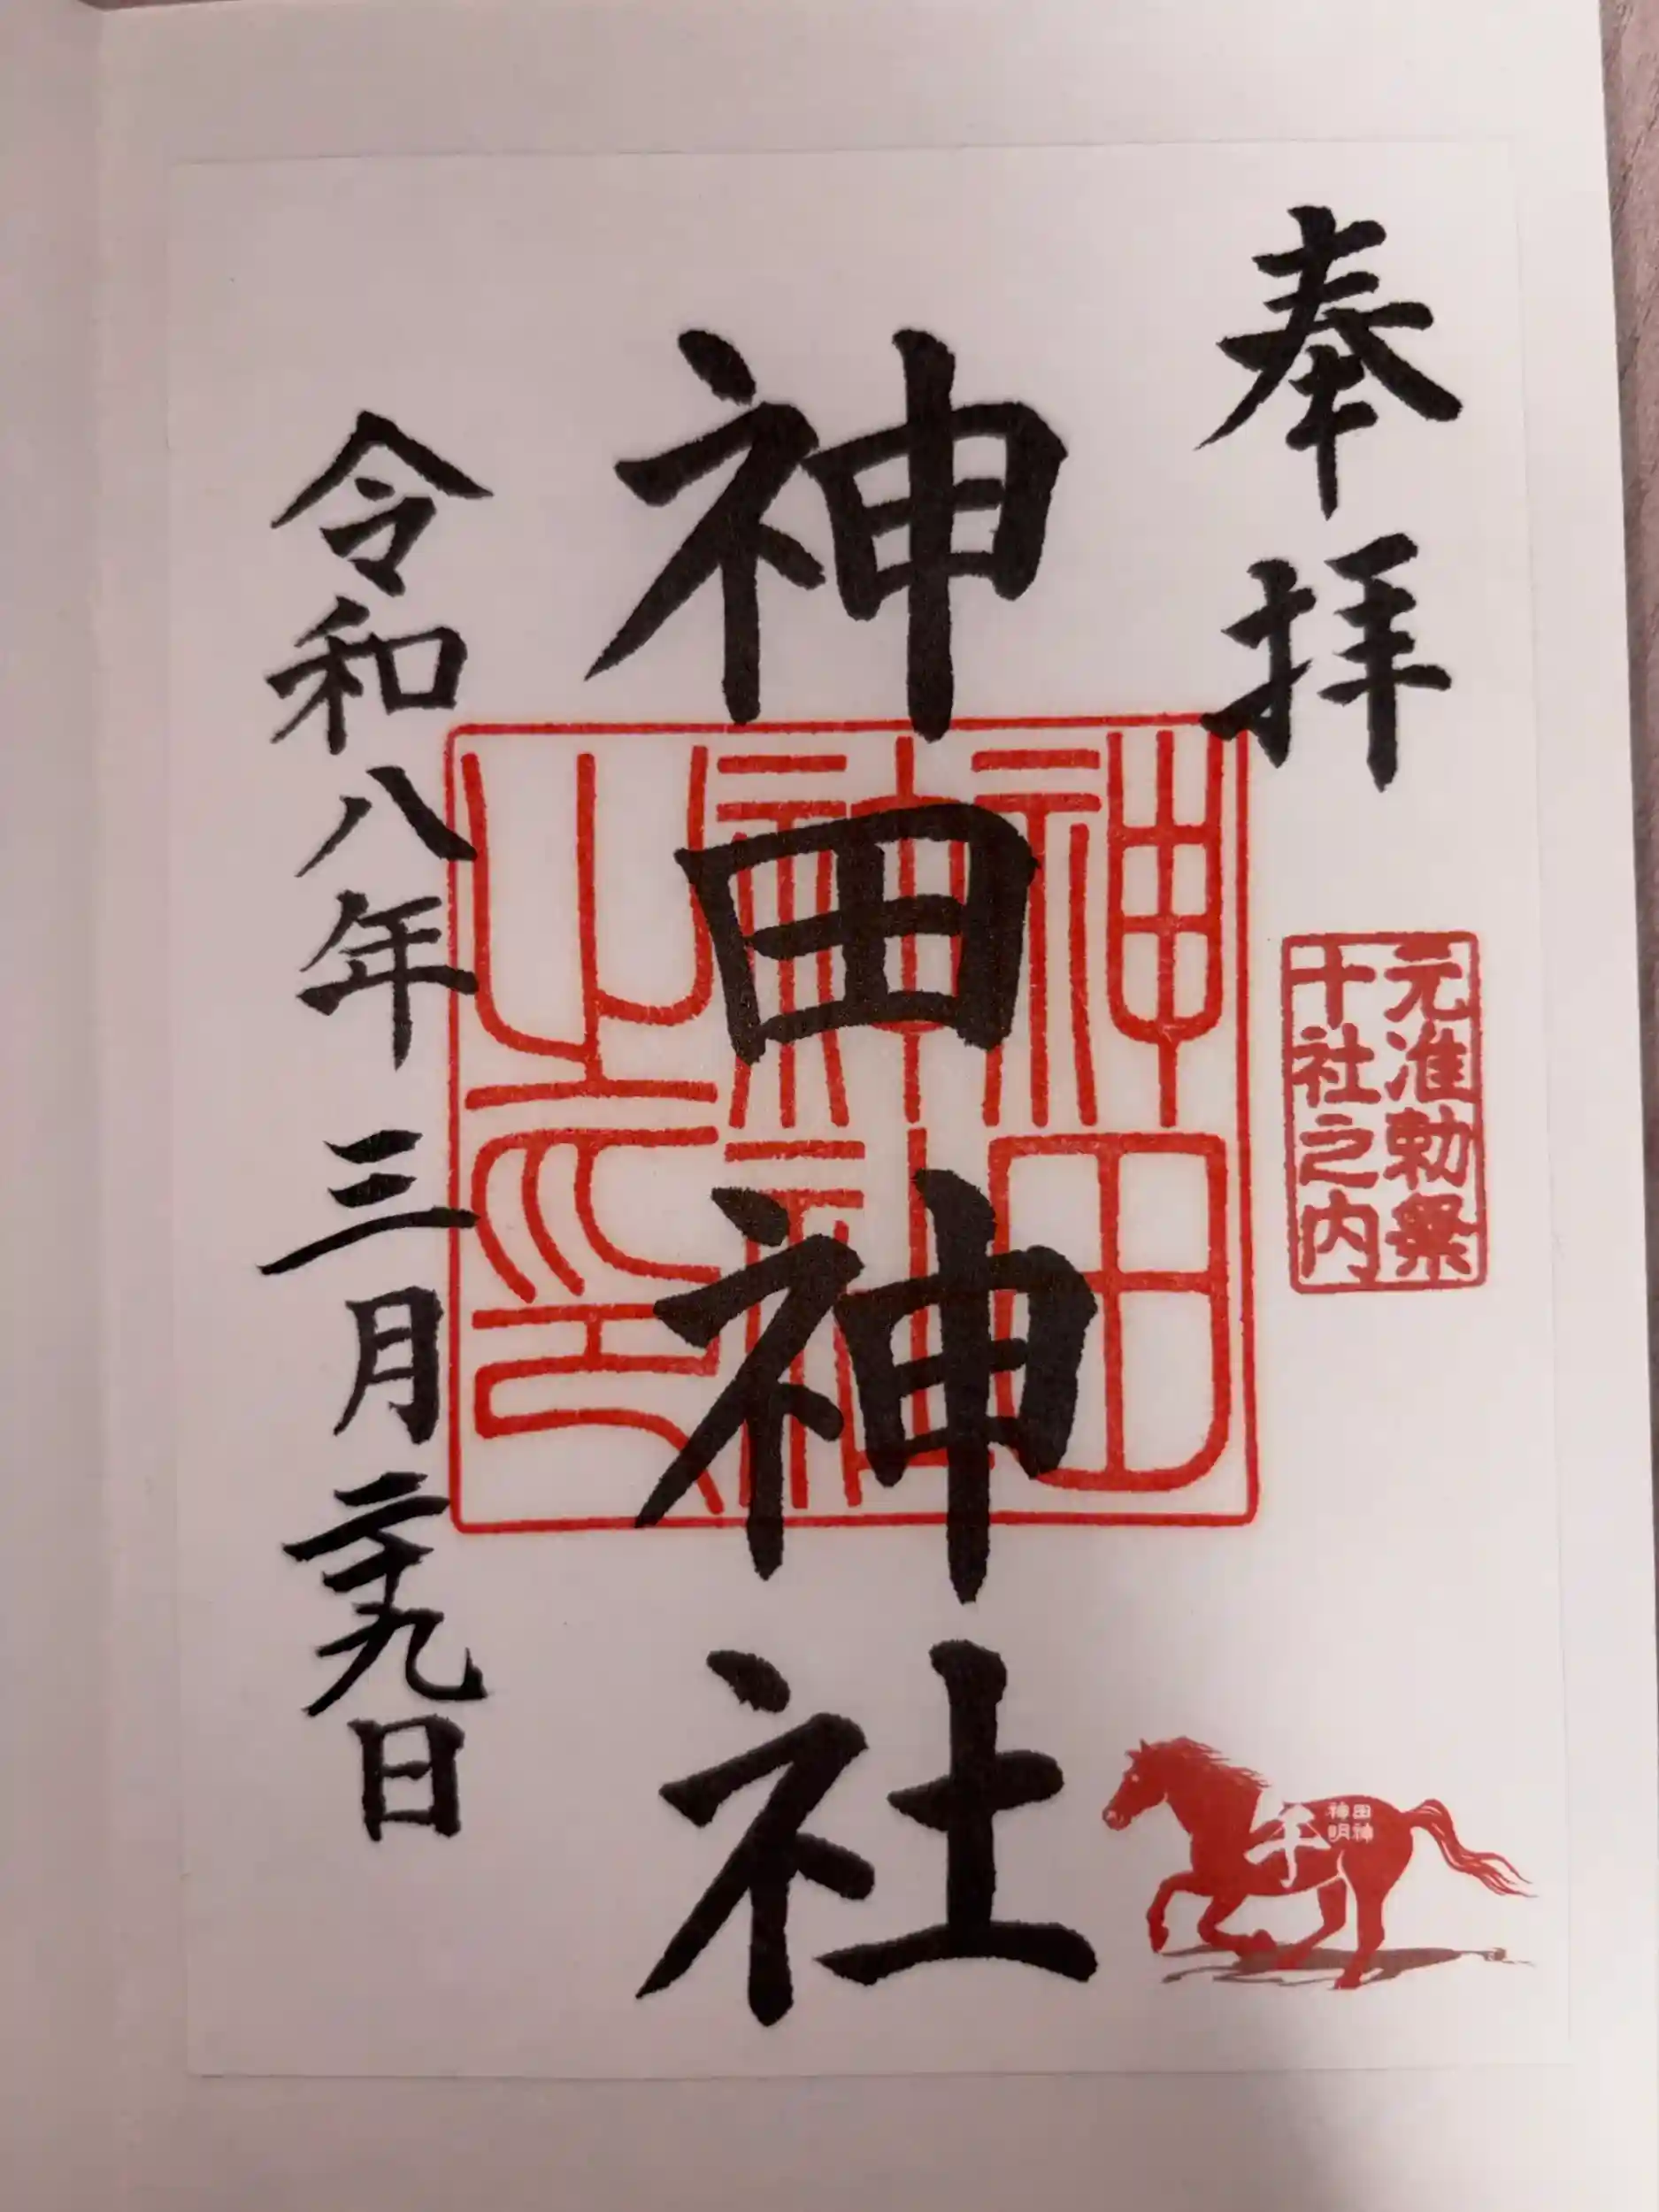 奉拝
元准勅祭
十社之内
神田神社
神田神社之印
令和八年三月二十九日
午
神田
明神